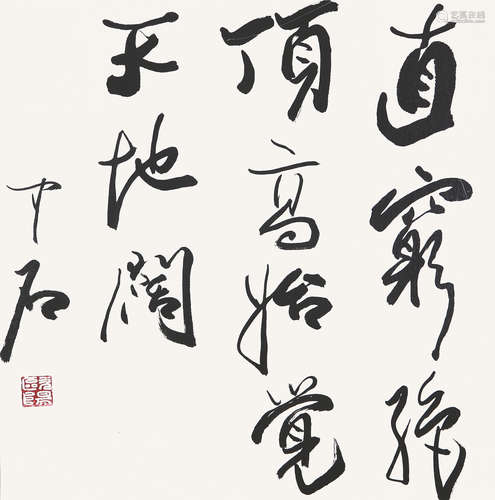 直窮絕
頂高始覺
天地闊
中石